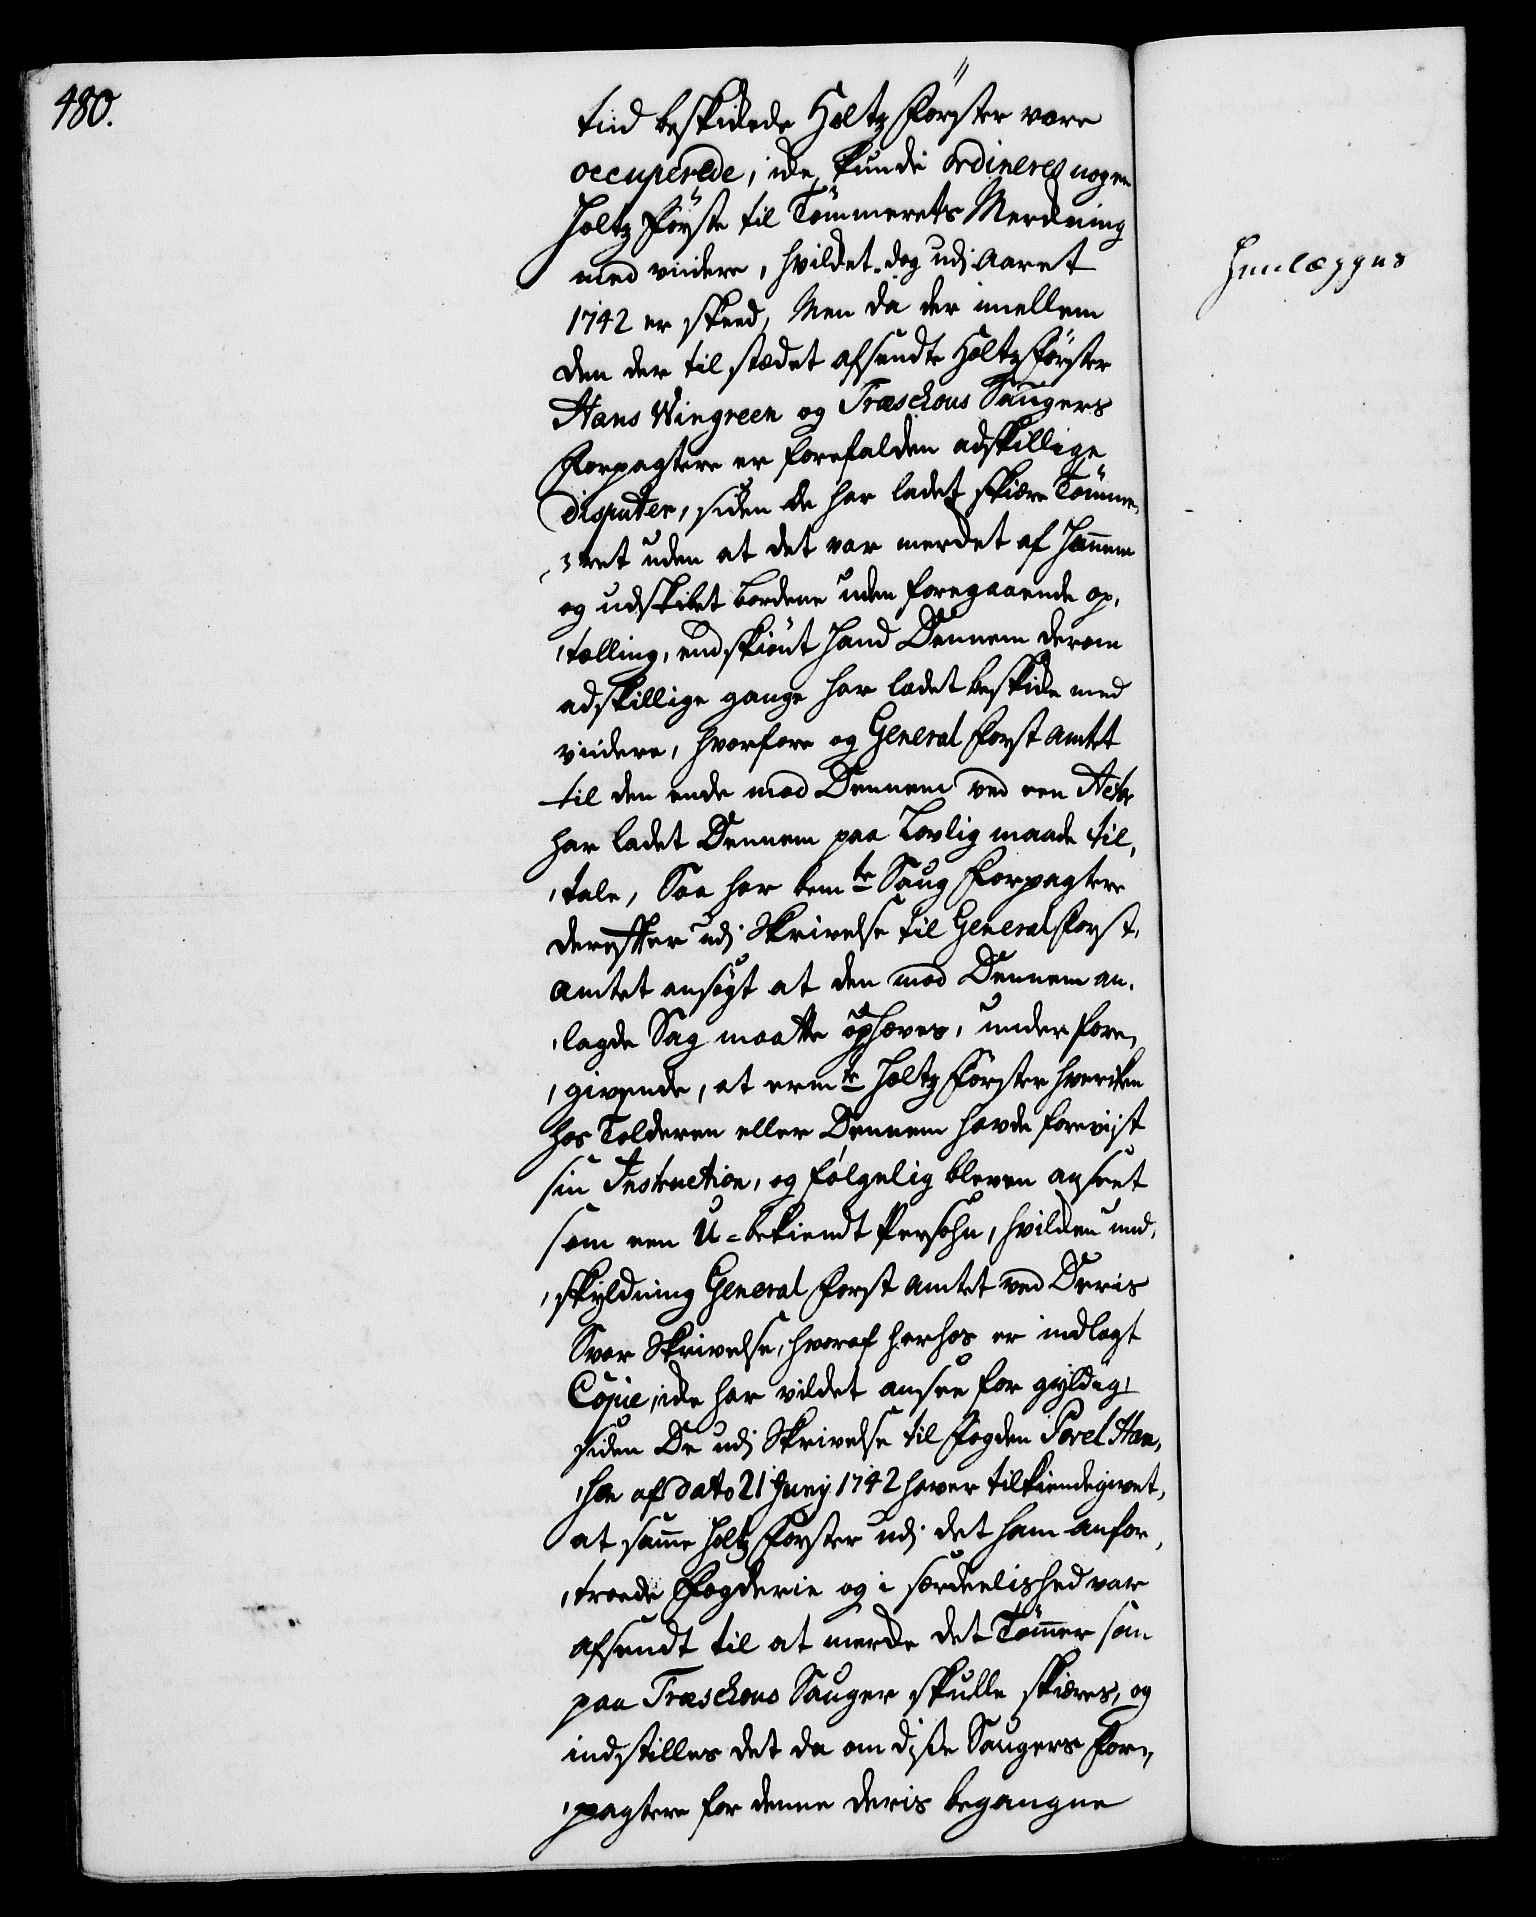 480.
tiid beskikkede Holtz Förster vare
occuperede, icke kunde ordineres nogen
Holtz Förster til Tömmerets Merckning
med viidere, hvilcket dog udj Aaret
1742 er skeed, Men da der imellem
den der til stædet afsendte Holtz Förster
Hans Wingreen og Træschous Saugers
Forpagtere er forefalden adskillige
disputer, siden de har ladet skiære Tömme,
,ret uden at det var mercket af Hannem
og udskibet bordene uden foregaaende op,
,tælling, endskiönt Hand Dennem derom
adskillige gange har ladet beskikke med
viidere, hvorfore og General Forst Amtet
til den ende mod Dennem ved een Actor
har ladet Dennem paa Lovlig maade til,
,tale, Saa har bemte Saug Forpagtere
derefter udj Skrivelse til General Forst,
Amtet ansögt at den mod Dennem an,
,lagde Sag maatte ophæves, under fore,
,givende, at ermte Holtz Förster hverken
hos Tolderen eller Dennem havde foreviist
sin Instruction, og fölgelig bleven anseet
som een U-bekiendt Persohn, hvilcken und,
,skyldning General Forst Amtet ved Deris
Svar Skrivelse, hvoraf herhos er indlagt
Copie, icke har vildet ansee for gyldig,
siden De udj Skrivelse til Fogden Povel Han,
,sen af dato 21 Junij 1742 haver tilkiendegivet,
at samme Holtz Förster udj det ham anfor,
,troede Fogderie og i særdeelished var
afsendt til at mercke det Tömmer som
paa Træschous Sauger skulle skiæres, og
indstilles det da om disse Saugers For,
,pagtere for denne deris begangne
Henlægges